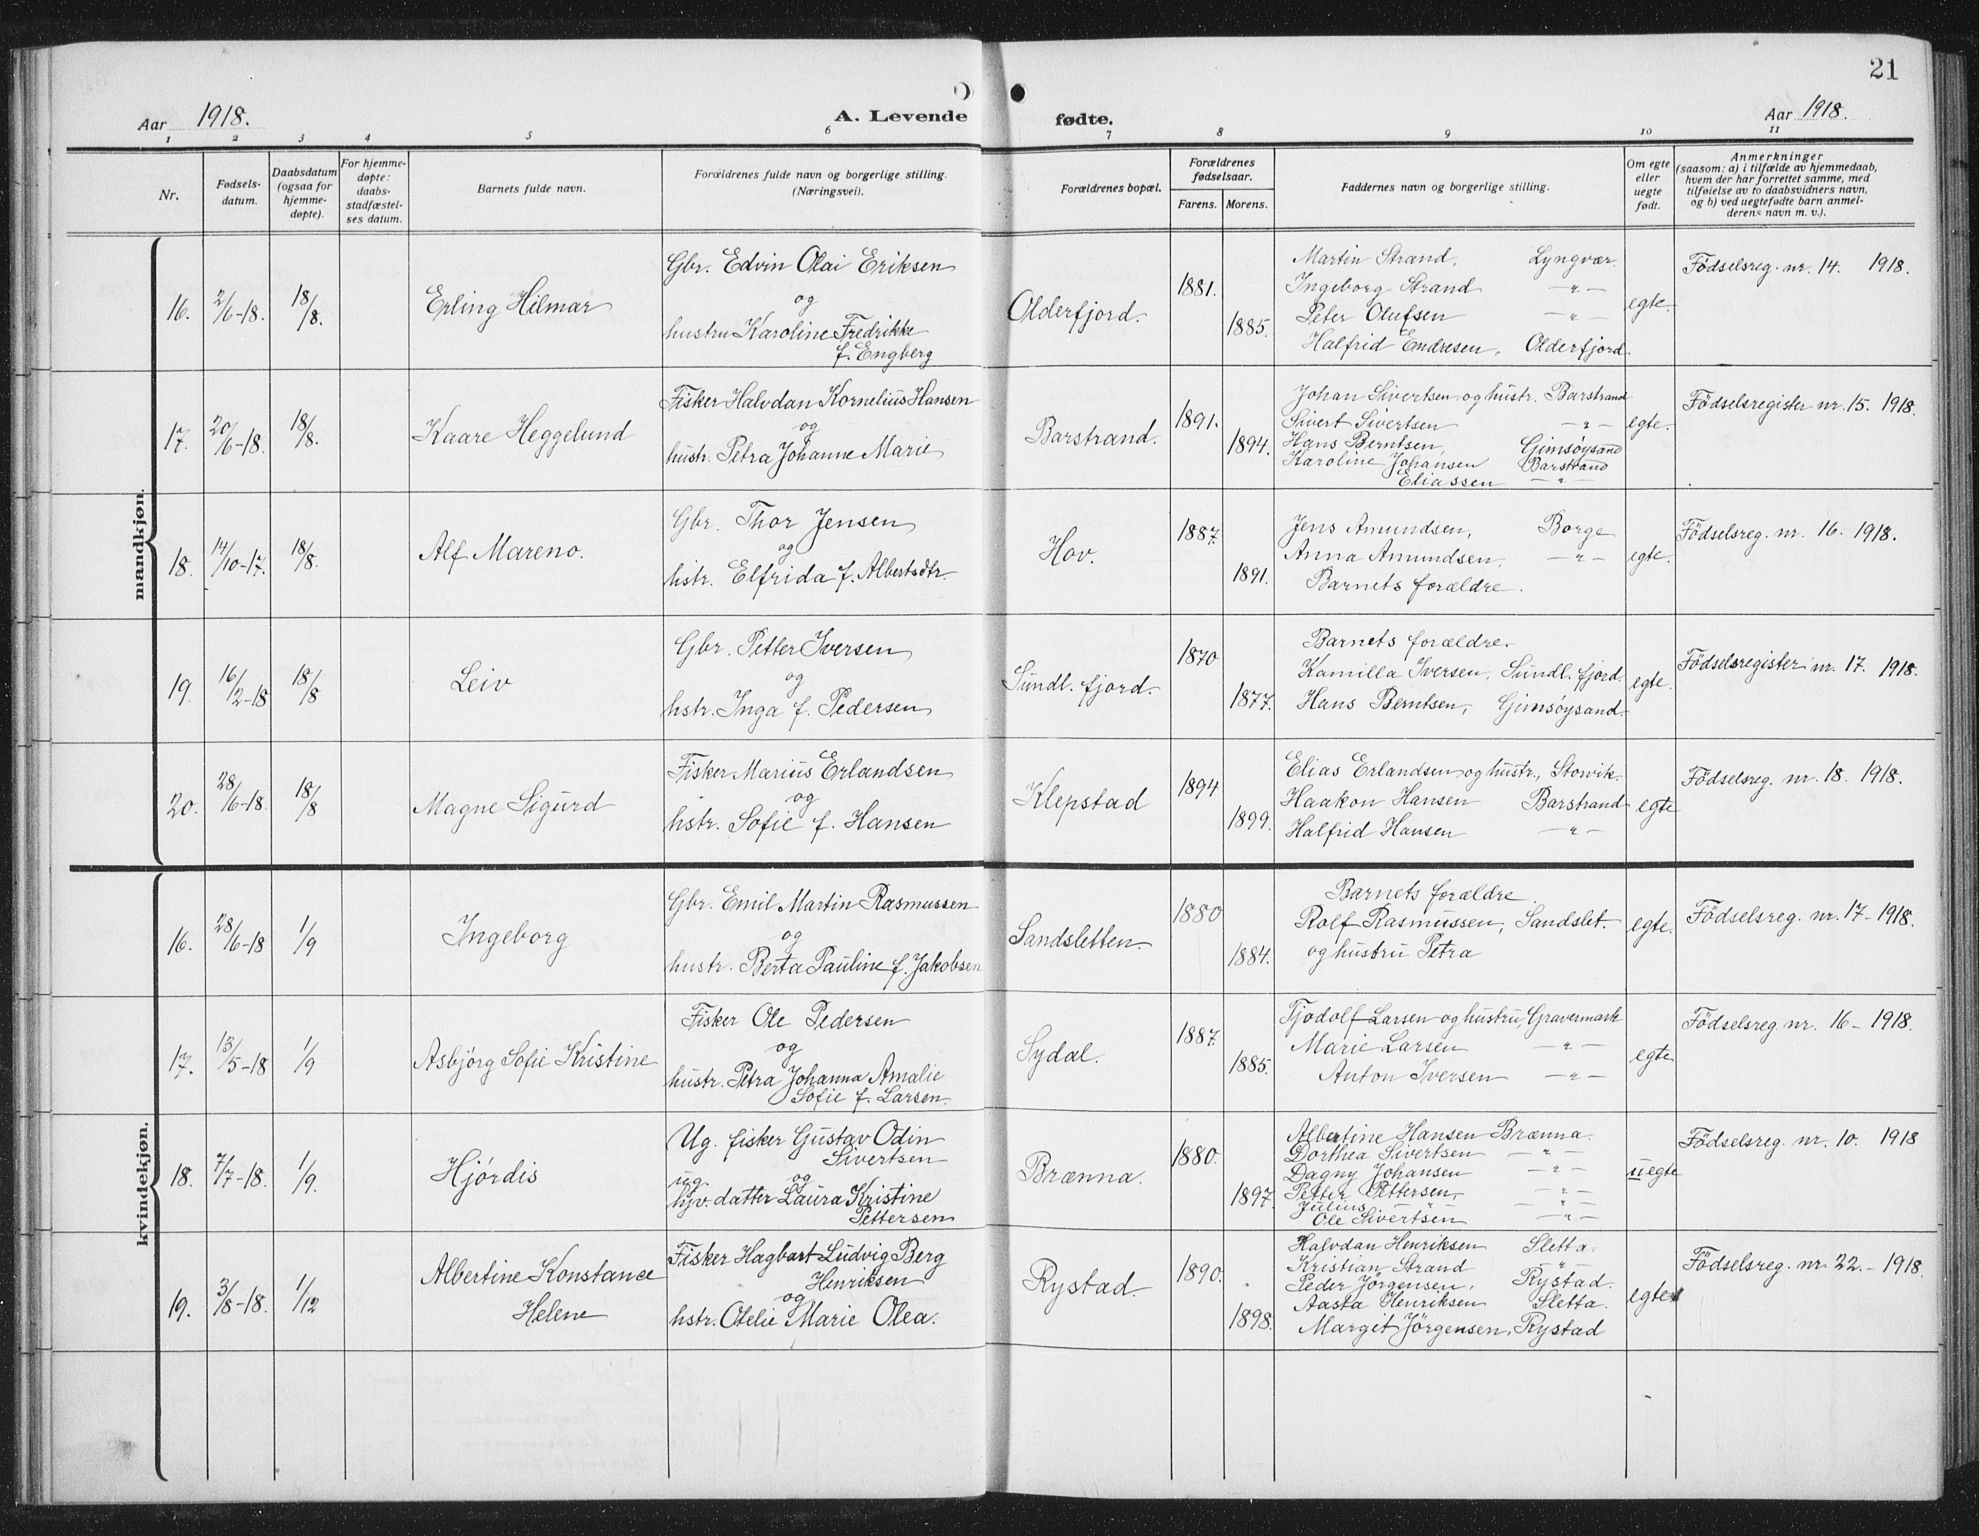 21
Aar 1918.
A. Levende fødte.
Aar 1918.
1 2 3 4 5 6 7 8 9 10 11
Nr.
Fødsels-
datum.
Daabsdatum
(ogsaa for
hjemme-
døpte).
For hjemme-
døpte:
daabs-
stadfæstel-
ses datum.
Barnets fulde navn.
Forældrenes fulde navn og borgerlige stilling.
(Næringsvei).
Forældrenes bopæl.
Forældrenes
fødselsaar.
Farens. Morens.
Faddernes navn og borgerlige stilling.
Om egte
eller
uegte
født.
Anmerkninger
(saasom: a) i tilfælde av hjemmedaab,
hvem der har forrettet samme, med
tilføielse av to daabsvidners navn,
og b) ved uegtefødte barn anmel-
derens navn m. v.).
mandkjøn.
16.
2/6-18.
18/8.
Erling Hilmar
Gbr. Edvin Olai Eriksen
og
hustru Karoline Fredrikke
f. Engberg
Olderfjord.
1881.
1885.
Martin Strand, Lyngvær.
Ingeborg Strand -"-
Peter Olufsen -"-
Halfrid Endresen, Olderfjord
egte.
Födselsreg. nr. 14. 1918.
17.
20/6-18.
18/8.
Kaare Heggelund
Fisker Halvdan Kornelius Hansen
og
hustr. Petra Johanne Marie
Barstrand.
1891.
1894.
Johan Sivertsen og hustr. Barstrand
Sivert Sivertsen -"-
Hans Berntsen, Gimsøysand
Karoline Johansen Barstrand
Eliassen -"-
egte.
Födselsregister nr. 15. 1918.
18.
14/10-17.
18/8.
Alf Mareno.
Gbr. Thor Jensen
og
hstr. Elfrida f. Albertsdtr.
Hov.
1887.
1891.
Jens Amundsen, Borge
Anna Amundsen. -"-
Barnets forældre.
egte.
Födselsreg. nr. 16. 1918.
19.
16/2-18
18/8
Leiv
Gbr. Petter Iversen
og
hstr. Inga f. Pedersen
Sundl. fjord.
1870
1877.
Barnets forældre.
Kamilla Iversen, Sundl. fjord
Hans Berntsen, Gimsøysand.
egte.
Födselsregister nr. 17. 1918.
20.
28/6-18.
18/8
Magne Sigurd
Fisker Marius Erlandsen
og
hstr. Sofie f. Hansen
Klepstad
1894
1899.
Elias Erlandsen og hustr., Storvik.
Haakon Hansen Barstrand
Halfrid Hansen -"-
egte
Födselsreg. nr. 18. 1918.
kvindekjøn.
16.
28/6-18
1/9
Ingeborg
Gbr. Emil Martin Rasmussen
og
hustr. Berta Pauline f. Jakobsen
Sandsletten.
1880
1884.
Barnets forældre.
Rolf Rasmussen, Sandslet.
og hustru Petra
egte.
Födselsreg. nr. 17 - 1918.
17.
13/5-18
1/9
Asbjörg Sofie Kristine
Fisker Ole Pedersen
og
hustr. Petra Johanna Amalie
Sofie f. Larsen.
Sydal.
1887.
1885.
Tjodolf Larsen og hustru, Gravermark
Marie Larsen -"-
Anton Iversen -"-
egte
Födselsreg. nr. 16 - 1918.
18.
7/7-18.
1/9.
Hjördis
Ug. fisker Gustav Odin
Sivertsen
og
ug.
hjv. datter Laura Kristine
Pettersen
Brænna.
1880.
1897.
Albertine Hansen Brænna.
Dorthea Sivertsen -"-
Dagny Johansen -"-
Petter Pettersen, -"-
Julius " -"-
Ole Sivertsen -"-
uegte
Födselsreg. nr. 10. 1918
19.
3/8-18.
1/12
Albertine Konstance
Helene
Fisker Hagbart Ludvig Berg
Henriksen
og
hstr. Otelie Marie Olea.
Rystad.
1890.
1898.
Halvdan Henriksen Sletta.
Kristian Strand -"-
Peder Jörgensen, Rystad.
Aasta Henriksen Sletta.
Margit Jörgensen, Rystad
egte
Födselsreg. nr. 22. - 1918.